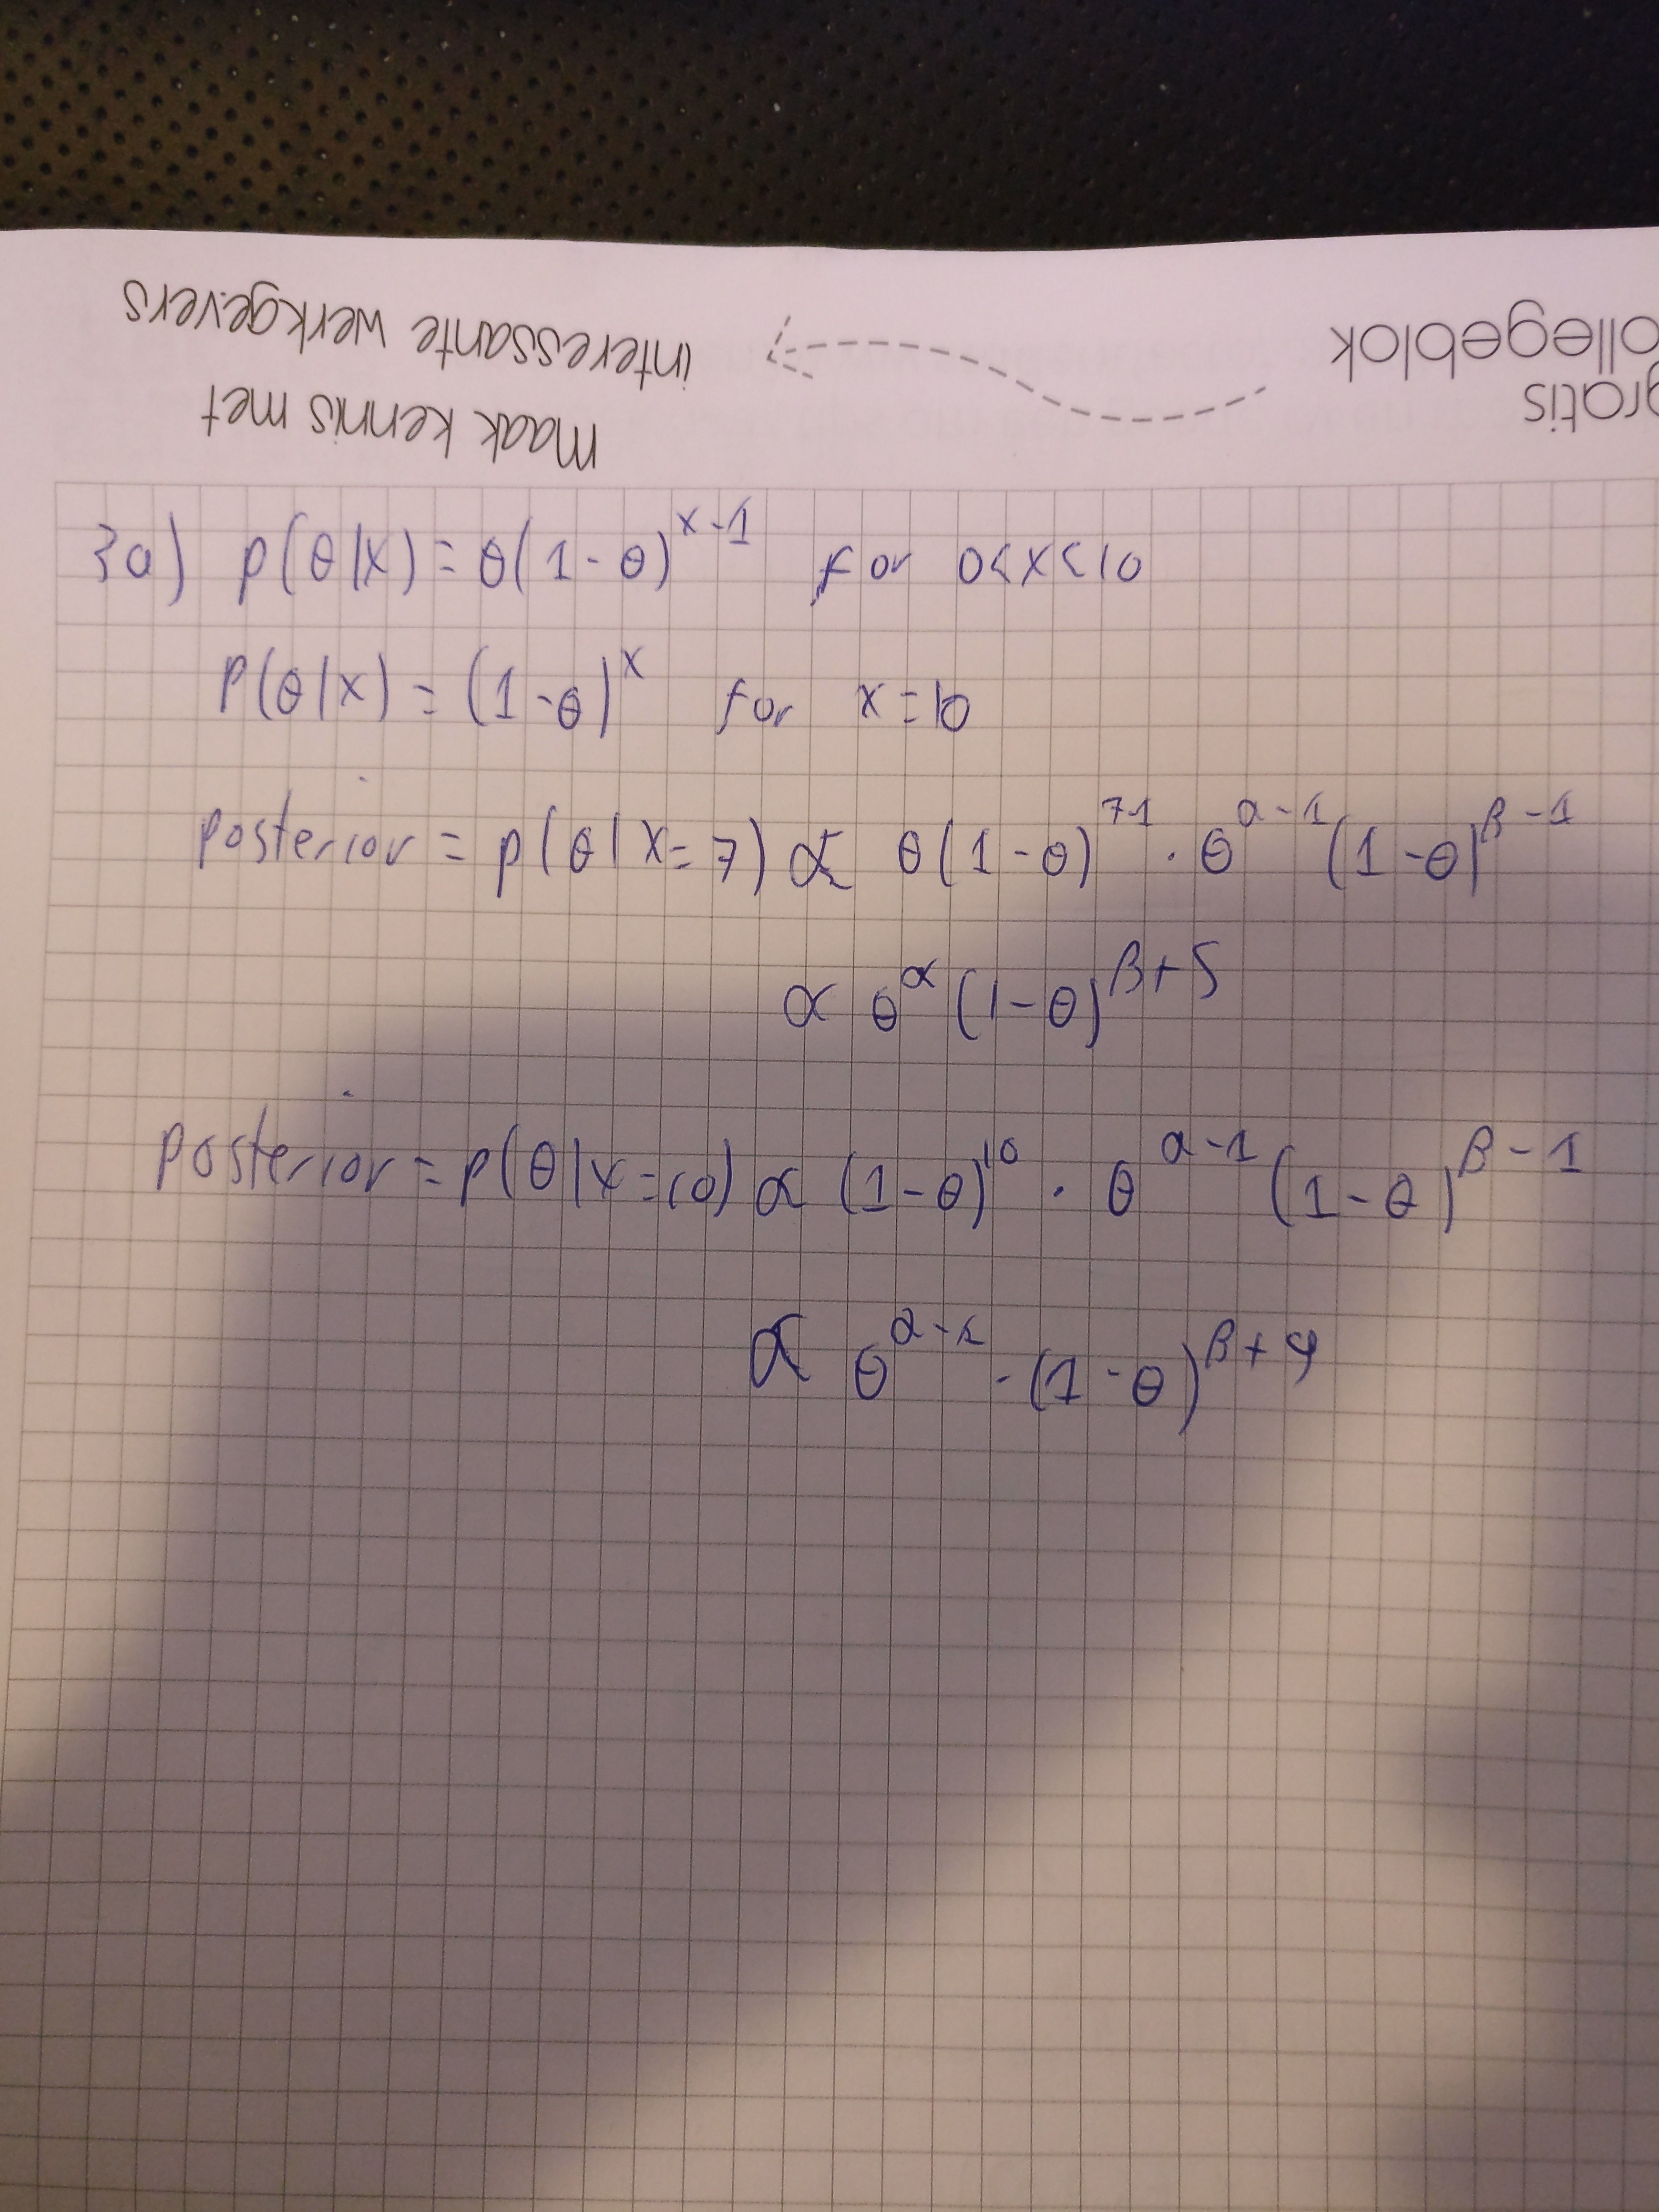 gratis
collegeblok
Maak kennis met
interessante werkgevers
3a) p(θ|x) = θ(1-θ)^{x-1} for 0<x<10
P(θ|x) = (1-θ)^x for x=10
Posterior = p(θ|x=7) ∝ θ(1-θ)^{7-1} · θ^{α-1}(1-θ)^{β-1}
∝ θ^α (1-θ)^{β+5}
Posterior = p(θ|x=10) ∝ (1-θ)^{10} · θ^{α-1} (1-θ)^{β-1}
∝ θ^{α-1} · (1-θ)^{β+9}